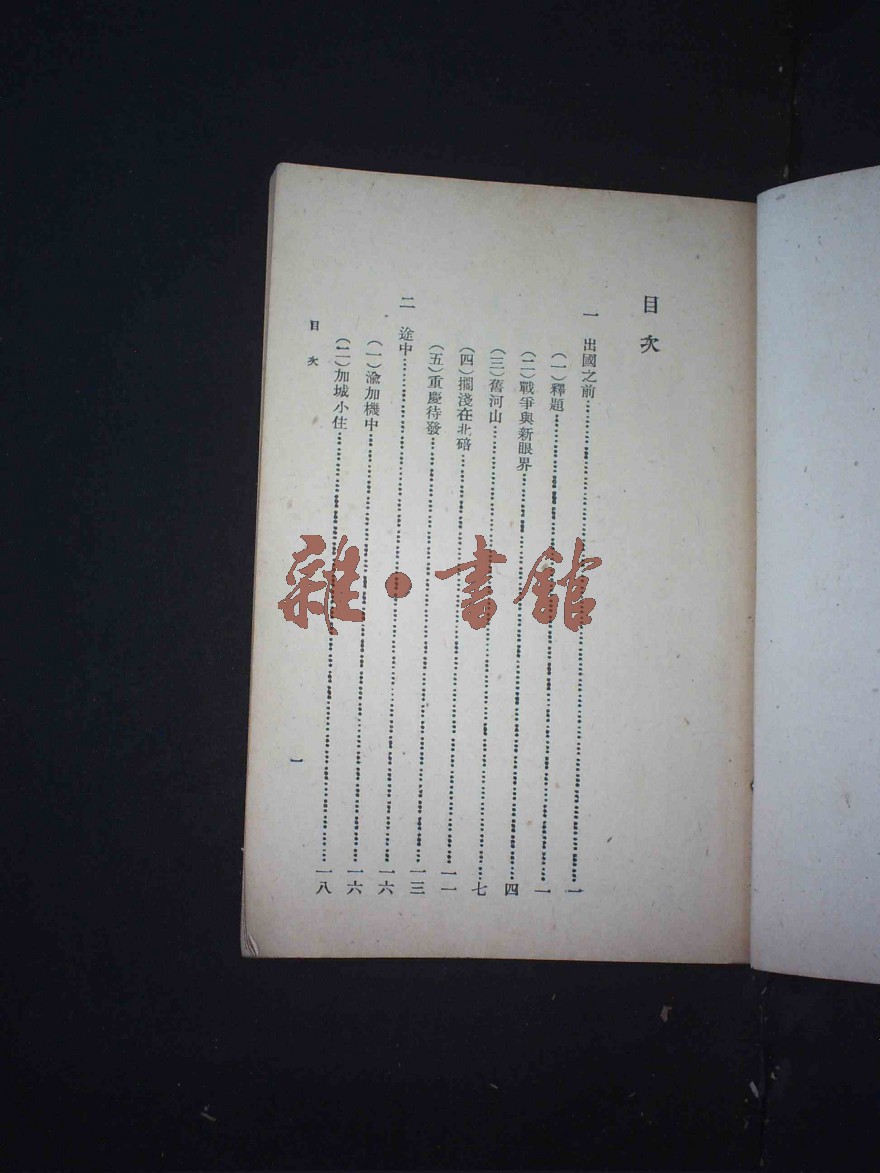 目次
一 出國之前……一
（一）釋題……一
（二）戰爭與新眼界……四
（三）舊河山……七
（四）擱淺在北碚……一一
（五）重慶待發……一三
二 途中……一六
（一）渝加機中……一六
（二）加城小住……一八
目次
一
雜·書館